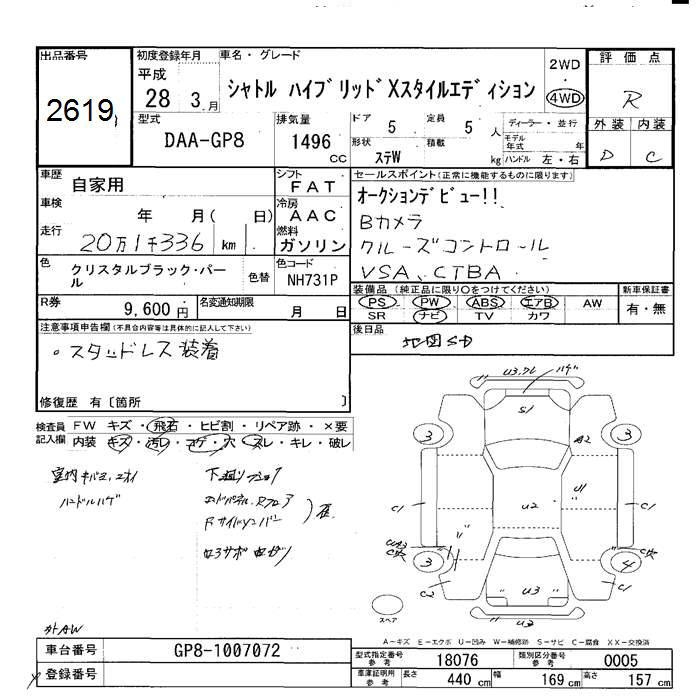 出品番号
2619
初度登録年月
平成
28 3.月
車名・グレード
シャトル ハイブリッドXスタイルエディション
2WD
・
4WD
評価点
R
外装 内装
D C
型式
DAA-GP8
排気量
1496
cc
ドア 5
定員 5 人
形状 ステW
積載 kg
ディーラー・並行
モデル年式 年
ハンドル 左・右
車歴
自家用
車検
年 月( 日)
走行
20万1千336 km
シフト
FAT
冷房
AAC
燃料
ガソリン
セールスポイント(正常に機能するものに限ります)
オークションデビュー!!
Bカメラ
クルーズコントロール
VSA、CTBA
色
クリスタルブラック・パール
色替
色コード
NH731P
R券
9,600円
名変通知期限
月 日
装備品 (純正品に限り○をつけてください)
PS PW ABS エアB AW
SR ナビ TV カワ
新車保証書
有・無
後日品
地図SD
注意事項申告欄(不具合内容等は具体的に記入して下さい)
。スタッドレス装着
修復歴 有〔箇所 〕
検査員記入欄
FW キズ・飛石・ヒビ割・リペア跡・×要
内装 キズ・汚レ・コゲ・穴・スレ・キレ・破レ
ハンドルハゲ
外AW
U3
S1
A2
3
3
C1
U2
U1
C1
3
4
C2
U3
C1
U3
スペア
A-キズ E-エクボ U-凹み W-補修跡 S-サビ C-腐食 XX-交換済
車台番号
GP8-1007072
登録番号
型式指定番号 参考
18076
類別区分番号 参考
0005
車庫証明用 参考
長さ 440 cm
幅 169 cm
高さ 157 cm